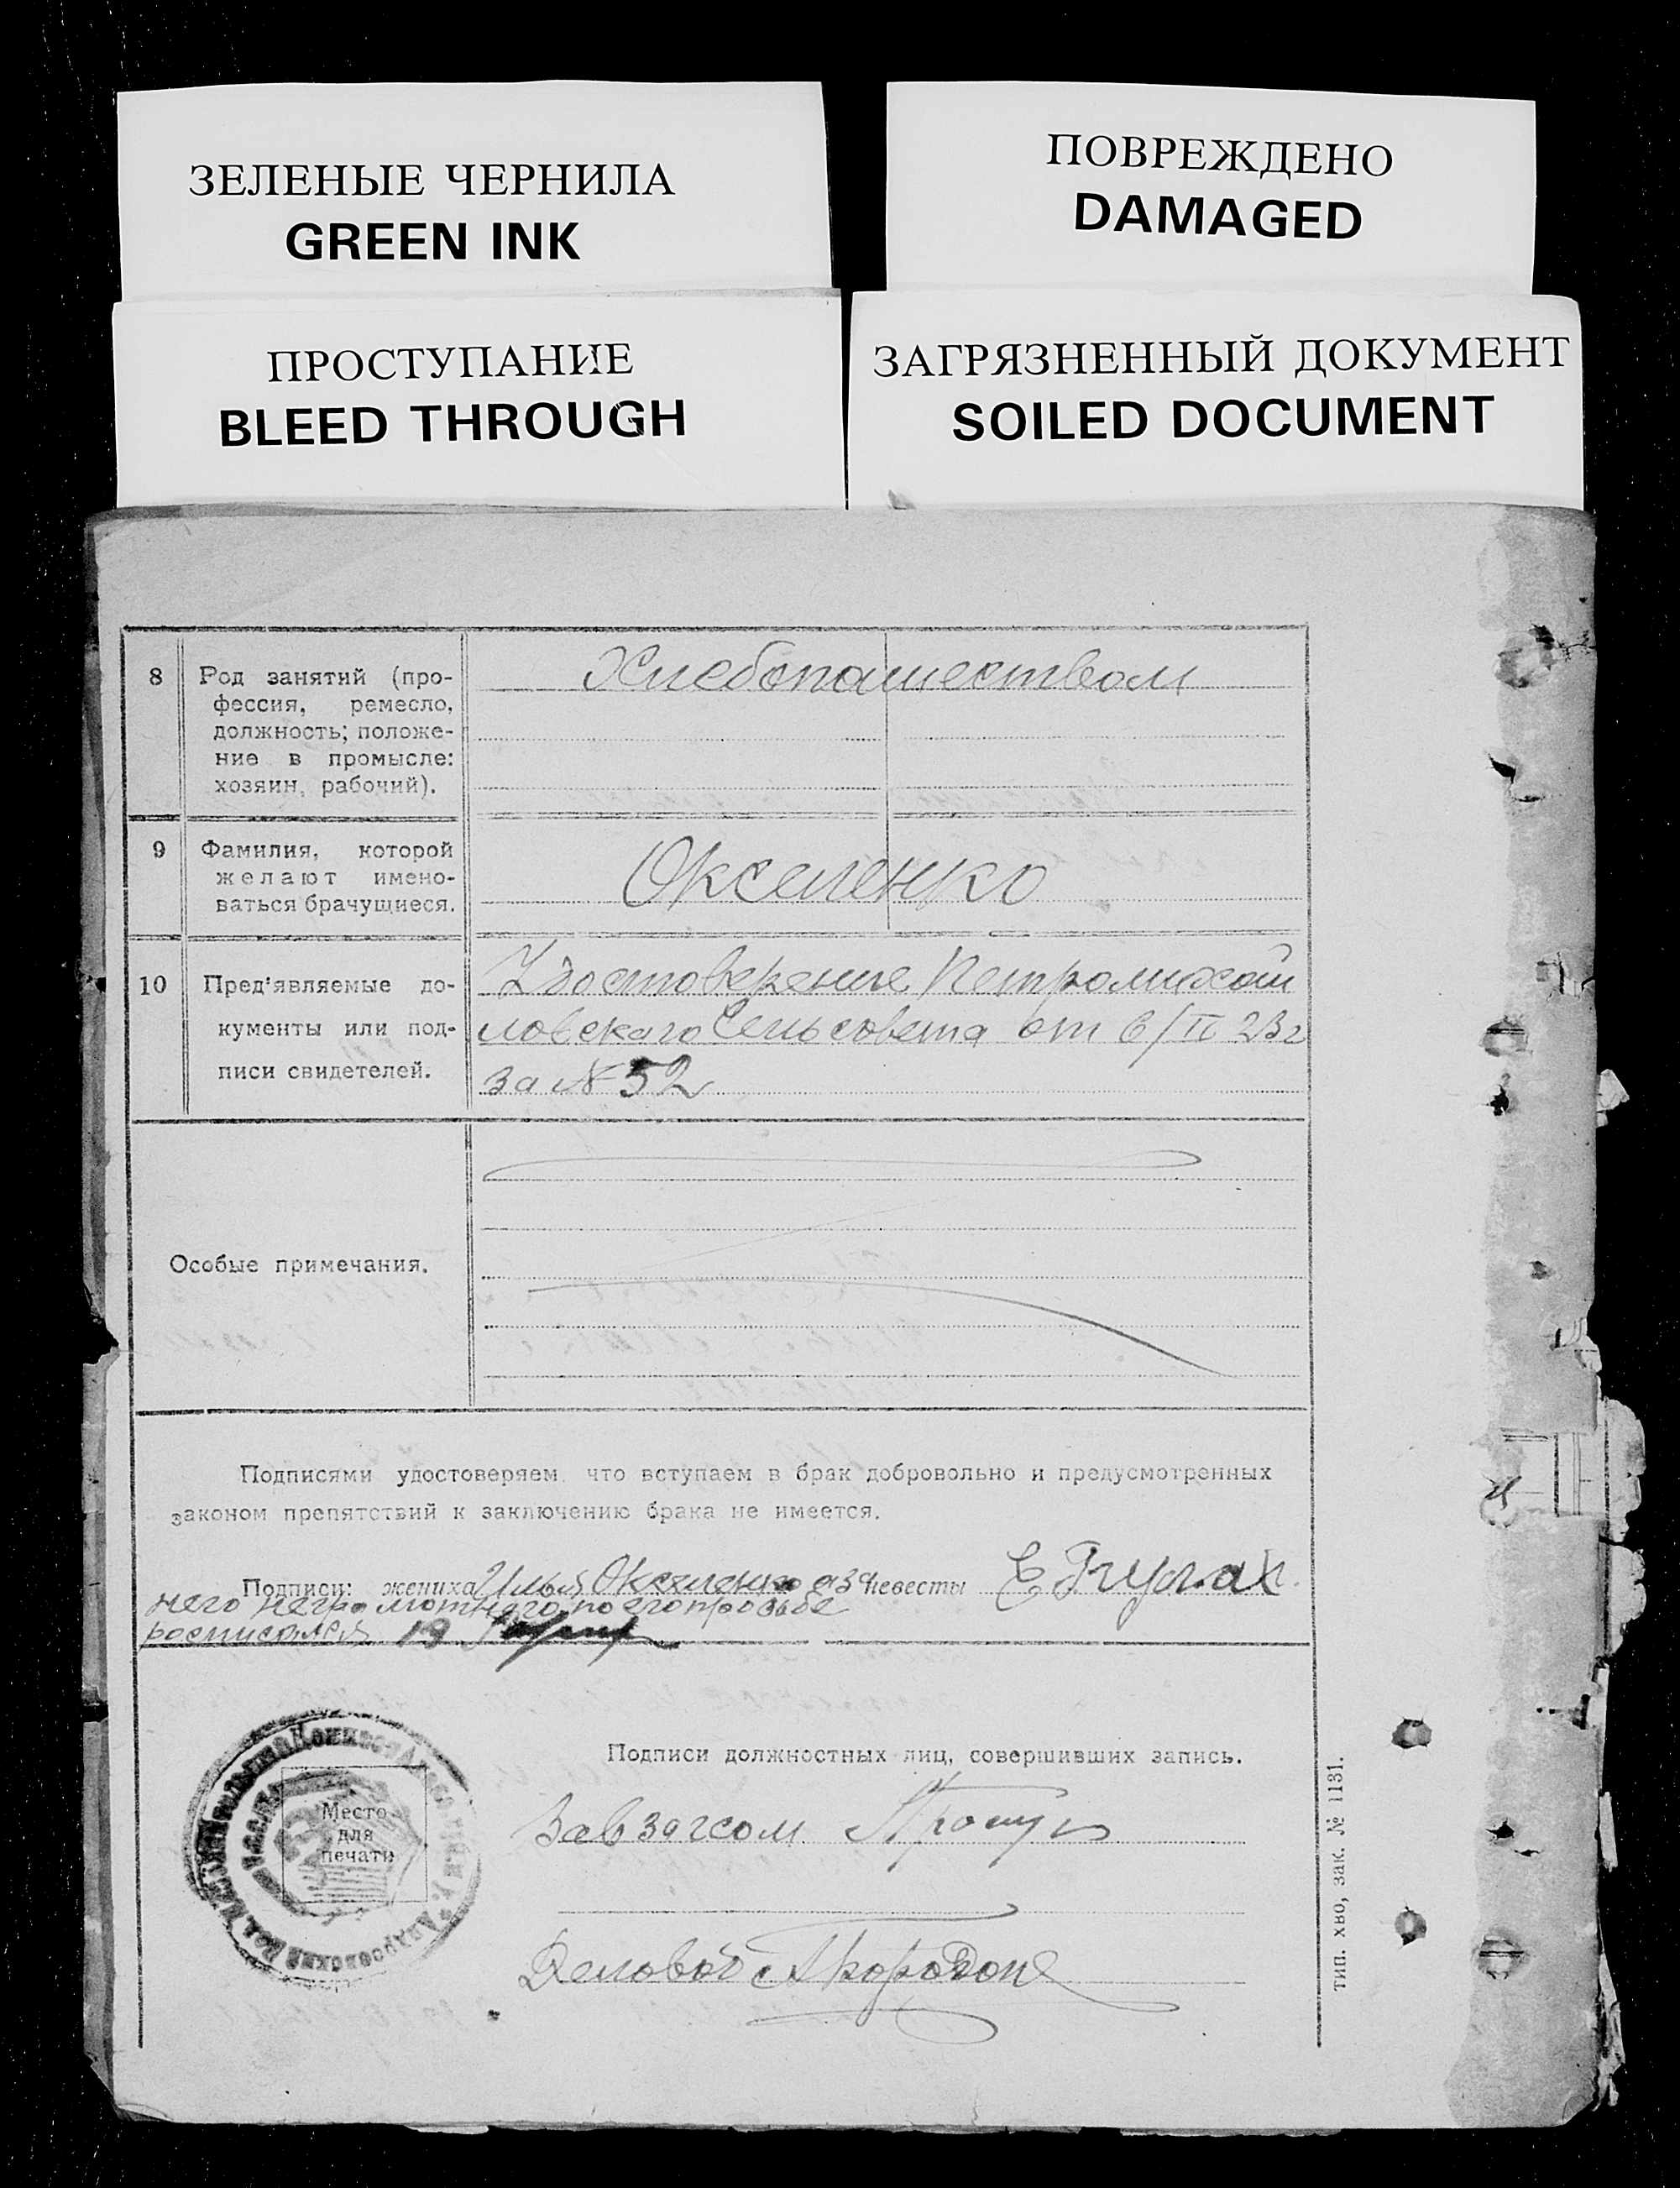 ЗЕЛЕНЫЕ ЧЕРНИЛА
GREEN INK
ПОВРЕЖДЕНО
DAMAGED
ПРОСТУПАНИЕ
BLEED THROUGH
ЗАГРЯЗНЕННЫЙ ДОКУМЕНТ
SOILED DOCUMENT
8
Род занятий (про-
фессия, ремесло,
должность; положе-
ние в промысле:
хозяин, рабочий).
Хлебопашеством
9
Фамилия, которой
желают имено-
ваться брачущиеся.
Окселенко
10
Пред'являемые до-
кументы или под-
писи свидетелей.
Удостоверение Петромихай
ловского Сельсовета от 6/II 23г
за № 52
Особые примечания.
Подписями удостоверяем что вступаем в брак добровольно и предусмотренных
законом препятствий к заключению брака не имеется.
Подписи: жениха Илья Окселенко а за невесты
него неграмотного по его просьбе
росписался
Место
для
печати
Подписи должностных лиц, совершивших запись.
Завзагсом
Деловод
тип. хво, зак. № 1131.